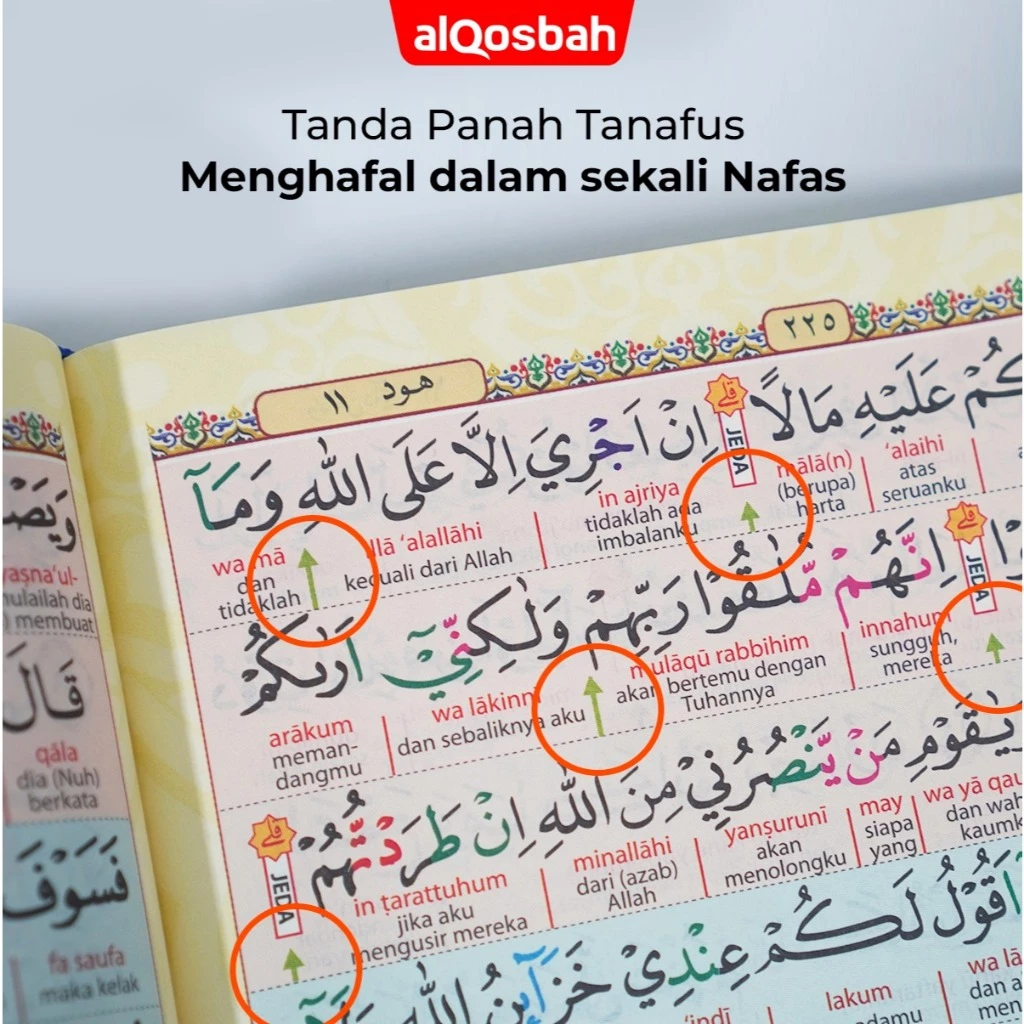 alQosbah
Tanda Panah Tanafus
Menghafal dalam sekali Nafas
هود ١١
٢٢٥
عَلَيْهِ مَالًا ۗ اِنْ اَجْرِيَ اِلَّا عَلَى اللّٰهِ وَمَآ
قلے
JEDA
'alaihi
atas
seruanku
mālā(n)
(berupa)
harta
in ajriya
tidaklah ada
imbalanku
illā 'alallāhi
kecuali dari Allah
wa mā
dan
tidaklah
اِنَّهُمْ مُّلٰقُوْا رَبِّهِمْ وَلٰكِنِّيْٓ اَرٰىكُمْ
قلے
JEDA
innahum
sungguh,
mereka
mulāqū rabbihim
akan bertemu dengan
Tuhannya
wa lākinnī
dan sebaliknya aku
arākum
meman-
dangmu
يٰقَوْمِ مَنْ يَّنْصُرُنِيْ مِنَ اللّٰهِ اِنْ طَرَدْتُّهُمْ
قلے
JEDA
wa yā
may
siapa
yang
yanṣurunī
akan
menolongku
minallāhi
dari (azab)
Allah
in ṭarattuhum
jika aku
mengusir mereka
اَقُوْلُ لَكُمْ عِنْدِيْ خَزَاۤىِٕنُ اللّٰهِ
lakum
'indī
قَالَ
qāla
dia (Nuh)
berkata
فَسَوْفَ
fa saufa
maka kelak
mulailah dia
membuat